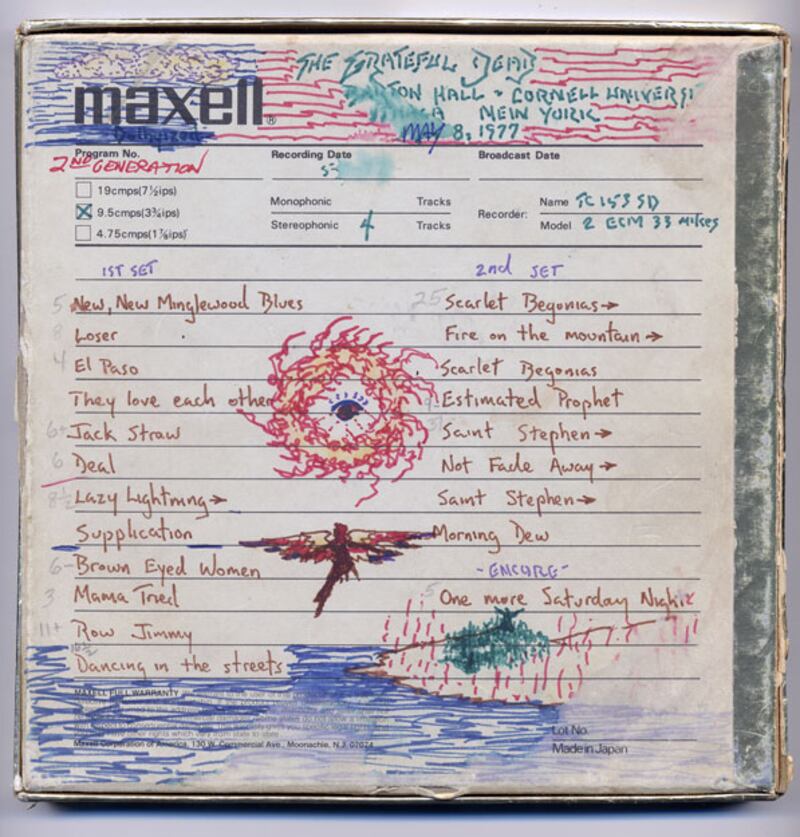 THE GRATEFUL DEAD
BARTON HALL - CORNELL UNIVERSI
NEW YORK
MAY 8, 1977
maxell®
Dolbyized
Program No.
2ND GENERATION
Recording Date
Broadcast Date
19cmps(7½ips)
9.5cmps(3¾ips)
4.75cmps(1⅞ips)
Monophonic Tracks
Stereophonic 4 Tracks
Recorder: Name TC 153 SD
Model 2 ECM 33 mikes
1ST SET
5 New, New Minglewood Blues
8 Loser
4 El Paso
They love each other
6+ Jack Straw
6 Deal
8½ Lazy Lightning→
Supplication
6- Brown Eyed Women
3 Mama Tried
11+ Row Jimmy
16½
Dancing in the streets
2nd SET
25 Scarlet Begonias→
Fire on the mountain→
Scarlet Begonias
Estimated Prophet
Saint Stephen→
Not Fade Away→
Saint Stephen→
Morning Dew
-ENCORE-
5 One more Saturday Night
MAXELL FULL WARRANTY
Maxell Corporation of America, 130 W. Commercial Ave., Moonachie, N.J. 07074
Lot No.
Made in Japan